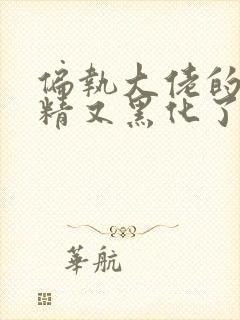 偏執大佬的
精又黑化了
華航